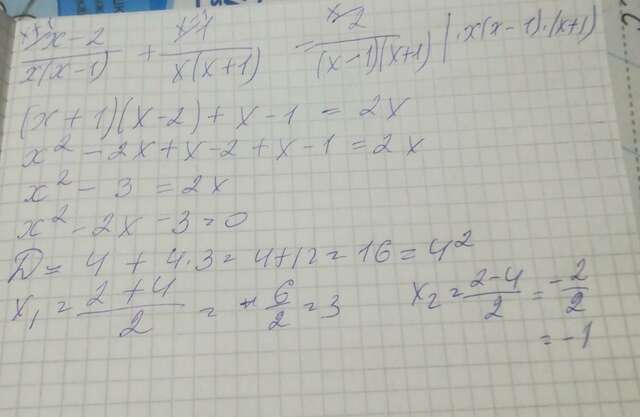 x+1/ x-2 / x(x-1) + x-1/ 1 / x(x+1) = x/ 2 / (x-1)(x+1) | · x(x-1)·(x+1)
(x+1)(x-2)+x-1 = 2x
x² - 2x+x-2+x-1=2x
x² - 3 = 2x
x² - 2x - 3=0
D = 4 + 4·3 = 4+12 = 16 = 4²
x₁ = 2+4 / 2 = 6 / 2 = 3 x₂ = 2-4 / 2 = -2 / 2
= -1